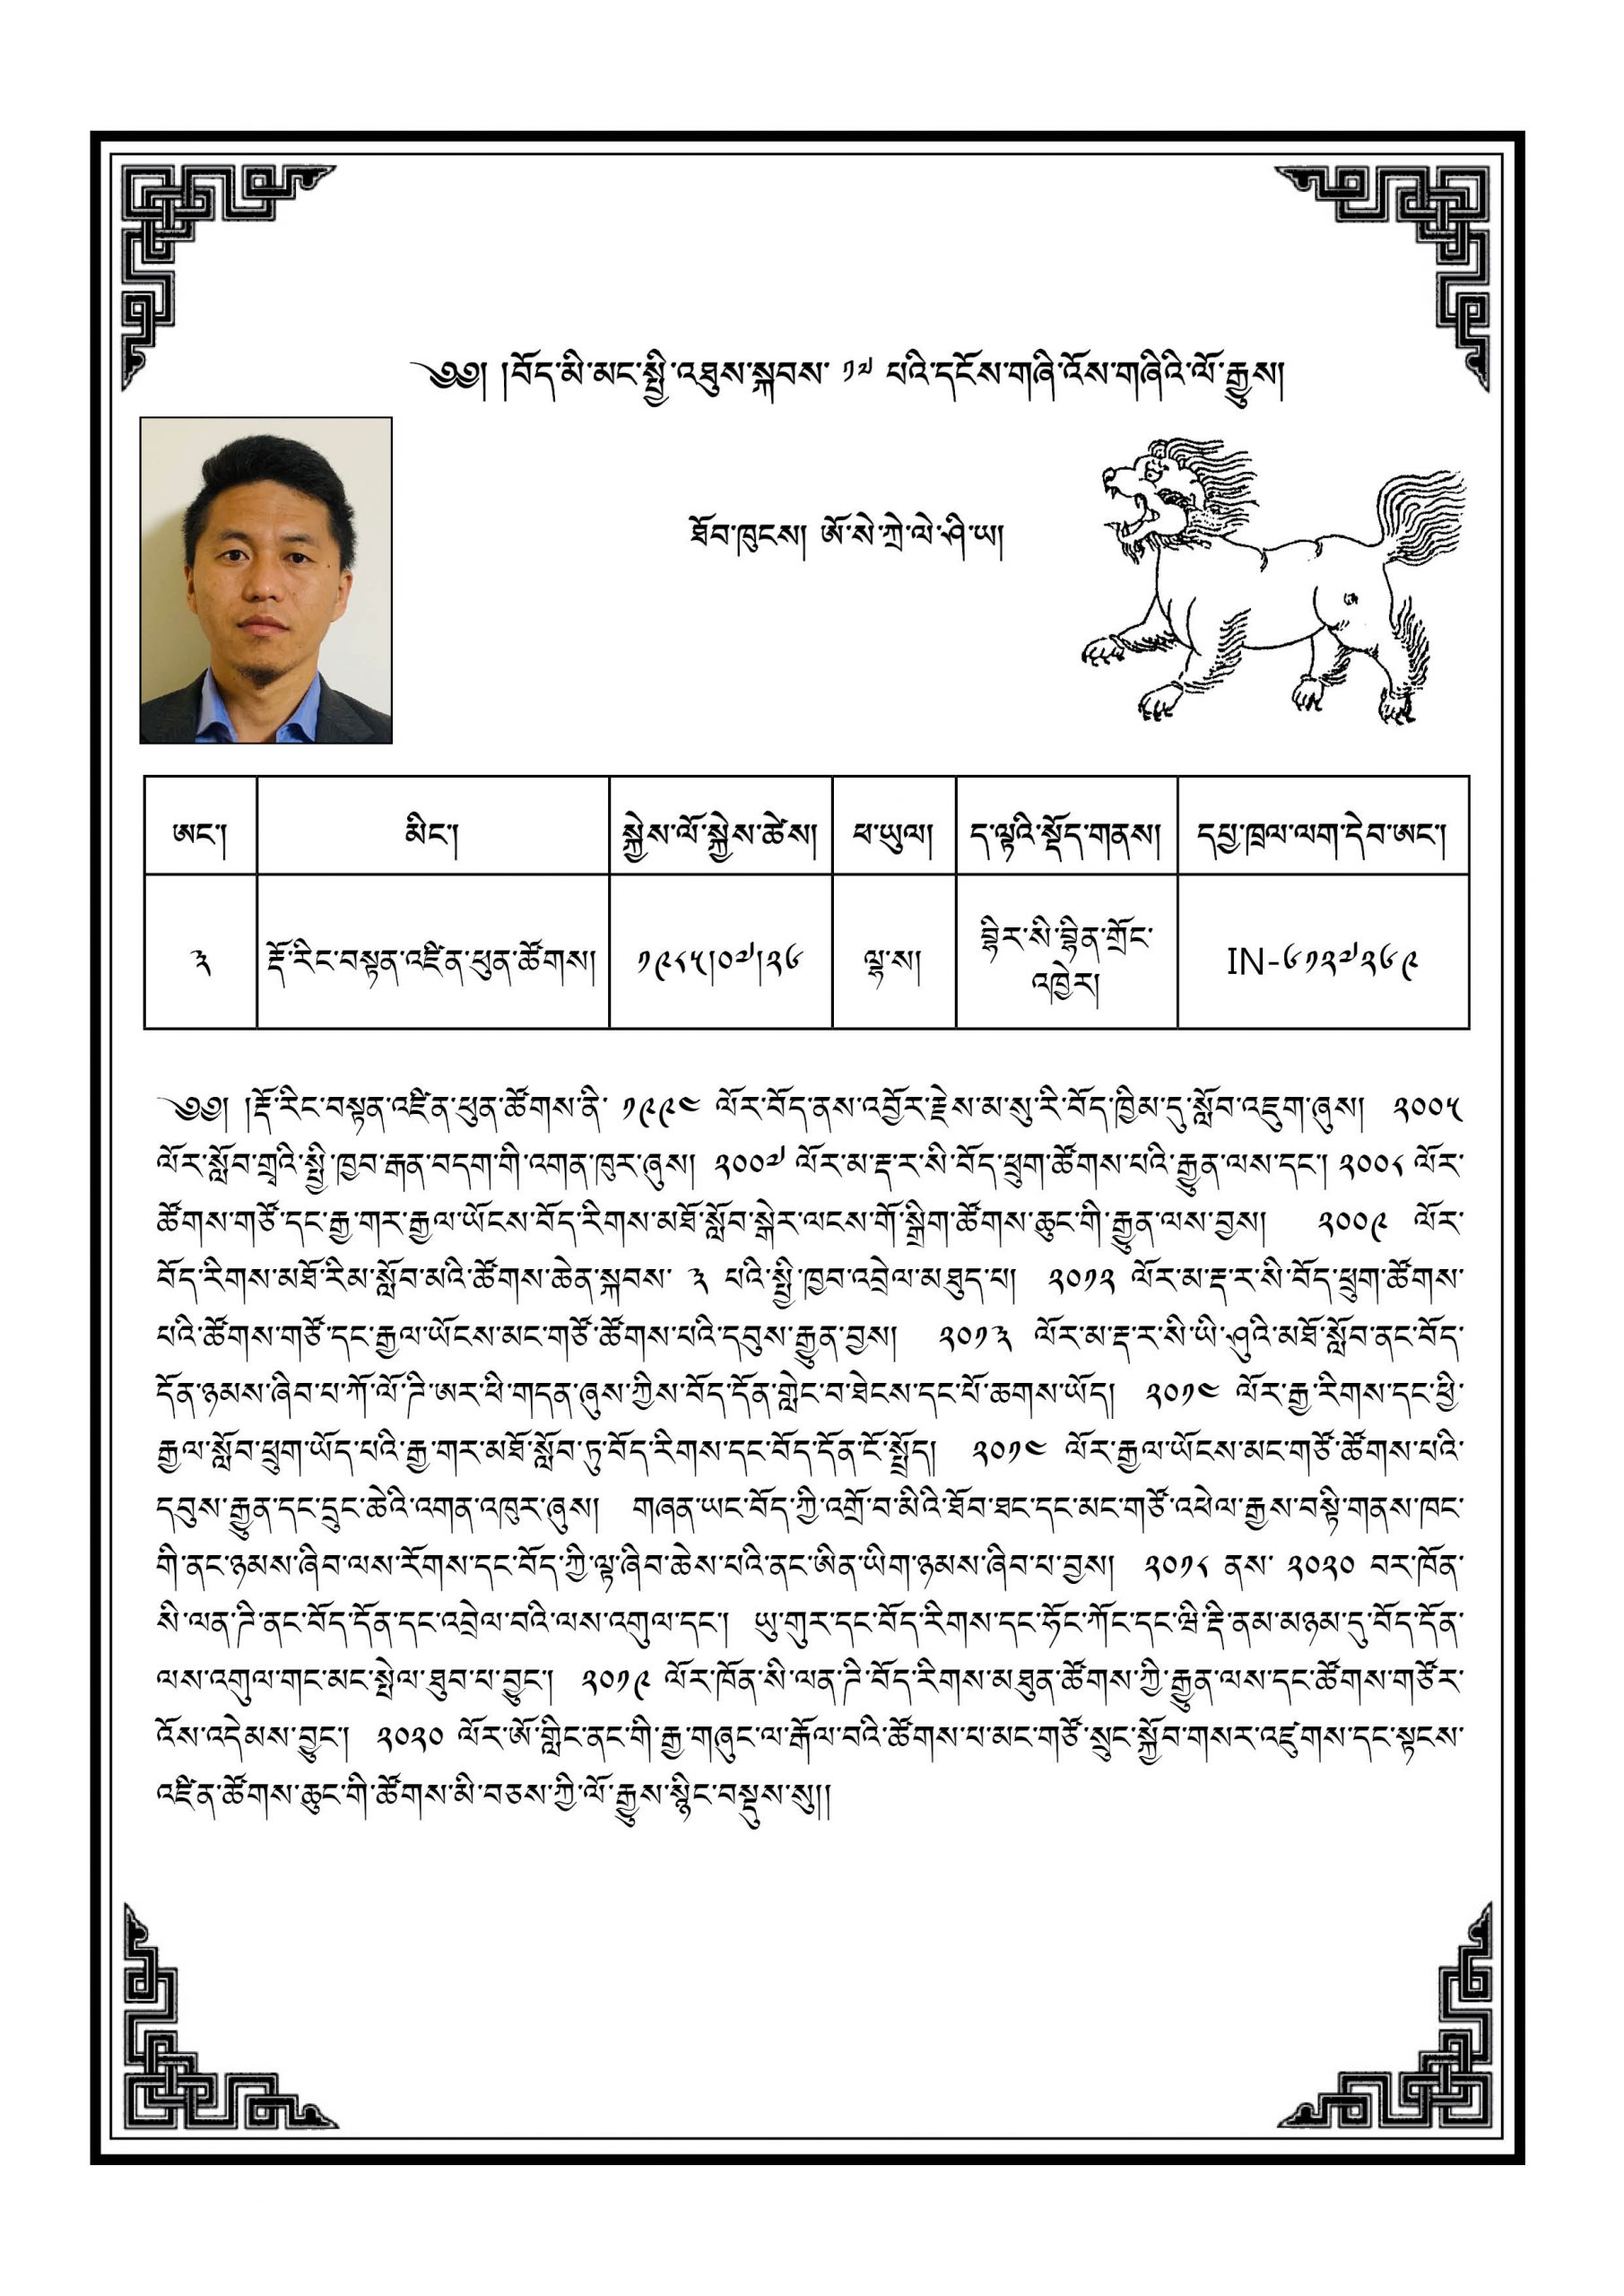 ༄༅། །བོད་མི་མང་སྤྱི་འཐུས་སྐབས་ ༡༧ པའི་དངོས་གཞི་འོས་གཞིའི་ལོ་རྒྱུས།
ཐོབ་ཁུངས། ཨོ་སེ་ཀྲེ་ལེ་ཤི་ཡ།
ཨང་། མིང་། སྐྱེས་ལོ་སྐྱེས་ཚེས། ཕ་ཡུལ། ད་ལྟའི་སྡོད་གནས། དཔྱ་ཁྲལ་ལག་དེབ་ཨང་།
༣ རྡོ་རིང་བསྟན་འཛིན་ཕུན་ཚོགས། ༡༩༨༥།༠༧།༢༦ ལྷ་ས། བྷིར་སི་བྷིན་གྲོང་
འཁྱེར། IN-༦༡༢༧༢༦༩
༄༅། །རྡོ་རིང་བསྟན་འཛིན་ཕུན་ཚོགས་ནི་ ༡༩༩༤ ལོར་བོད་ནས་འབྱོར་རྗེས་མ་སུ་རི་བོད་ཁྱིམ་དུ་སློབ་འཇུག་ཞུས། ༢༠༠༥
ལོར་སློབ་གྲྭའི་སྤྱི་ཁྱབ་རྒན་བདག་གི་འགན་ཁུར་ཞུས། ༢༠༠༧ ལོར་མ་ཌ་ར་སི་བོད་ཕྲུག་ཚོགས་པའི་རྒྱུན་ལས་དང་། ༢༠༠༨ ལོར་
ཚོགས་གཙོ་དང་རྒྱ་གར་རྒྱལ་ཡོངས་བོད་རིགས་མཐོ་སློབ་སྒེར་ལངས་གོ་སྒྲིག་ཚོགས་ཆུང་གི་རྒྱུན་ལས་བྱས། ༢༠༠༩ ལོར་
བོད་རིགས་མཐོ་རིམ་སློབ་མའི་ཚོགས་ཆེན་སྐབས་ ༣ པའི་སྤྱི་ཁྱབ་འབྲེལ་མཐུད་པ། ༢༠༡༢ ལོར་མ་ཌ་ར་སི་བོད་ཕྲུག་ཚོགས་
པའི་ཚོགས་གཙོ་དང་རྒྱལ་ཡོངས་མང་གཙོ་ཚོགས་པའི་དབུས་རྒྱུན་བྱས། ༢༠༡༣ ལོར་མ་ཌ་ར་སི་ཡི་ཤུའི་མཐོ་སློབ་ནང་བོད་
དོན་ཉམས་ཞིབ་པ་ཀོ་ལོ་ཌི་ཨར་ཕི་གདན་ཞུས་ཀྱིས་བོད་དོན་གླེང་བ་ཐེངས་དང་པོ་ཆགས་ཡོད། ༢༠༡༤ ལོར་རྒྱ་རིགས་དང་ཕྱི་
རྒྱལ་སློབ་ཕྲུག་ཡོད་པའི་རྒྱ་གར་མཐོ་སློབ་ཏུ་བོད་རིགས་དང་བོད་དོན་ངོ་སྤྲོད། ༢༠༡༤ ལོར་རྒྱལ་ཡོངས་མང་གཙོ་ཚོགས་པའི་
དབུས་རྒྱུན་དང་དྲུང་ཆེའི་འགན་འཁུར་ཞུས། གཞན་ཡང་བོད་ཀྱི་འགྲོ་བ་མིའི་ཐོབ་ཐང་དང་མང་གཙོ་འཕེལ་རྒྱས་བསྟི་གནས་ཁང་
གི་ནང་ཉམས་ཞིབ་ལས་རོགས་དང་བོད་ཀྱི་ལྟ་ཞིབ་ཆེས་པའི་ནང་ཨིན་ཡིག་ཉམས་ཞིབ་པ་བྱས། ༢༠༡༨ ནས་ ༢༠༢༠ བར་ཁོན་
སི་ལན་ཌི་ནང་བོད་དོན་དང་འབྲེལ་བའི་ལས་འགུལ་དང་། ཡུ་གུར་དང་བོད་རིགས་དང་ཧོང་ཀོང་དང་ཝི་ཌི་ནམ་མཉམ་དུ་བོད་དོན་
ལས་འགུལ་གང་མང་སྤེལ་ཐུབ་པ་བྱུང་། ༢༠༡༩ ལོར་ཁོན་སི་ལན་ཌི་བོད་རིགས་མཐུན་ཚོགས་ཀྱི་རྒྱུན་ལས་དང་ཚོགས་གཙོར་
འོས་འདེམས་བྱུང་། ༢༠༢༠ ལོར་ཨོ་གླིང་ནང་གི་རྒྱ་གཞུང་ལ་རྒོལ་བའི་ཚོགས་པ་མང་གཙོ་སྲུང་སྐྱོབ་གསར་འཛུགས་དང་སྟངས་
འཛིན་ཚོགས་ཆུང་གི་ཚོགས་མི་བཅས་ཀྱི་ལོ་རྒྱུས་སྙིང་བསྡུས་སུ།།